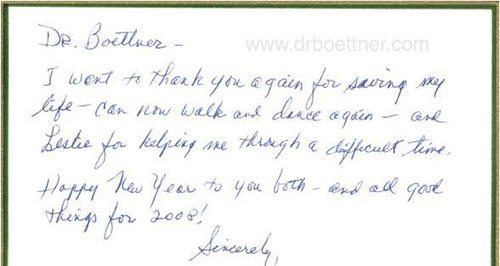 Dr. Boettner –
www.drboettner.com
I want to thank you again for saving my
life – can now walk and dance again – and
Leslie for helping me through a difficult time.
Happy New Year to you both – and all good
things for 2008!
Sincerely,